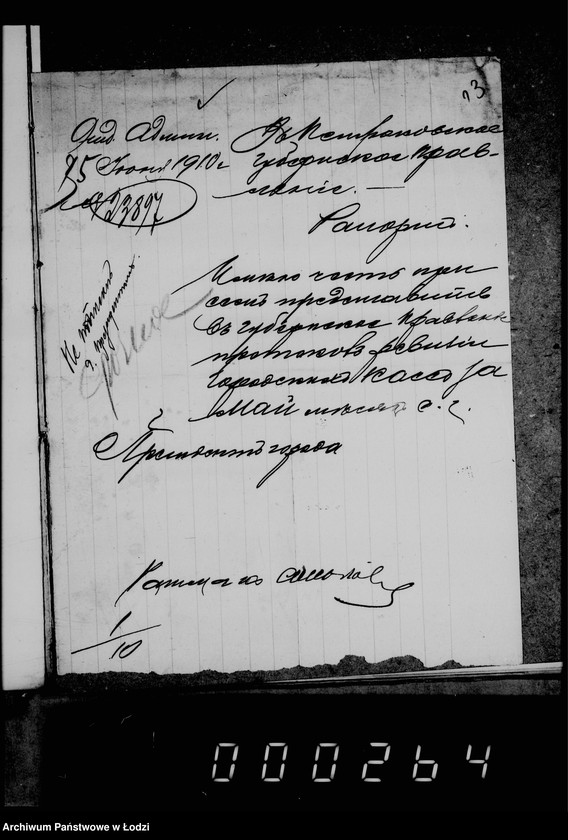 13
Отд. Админ.
25 Июня 1910 г.
№ 23897
Въ Петроковское
Губернское Прав-
леніе. —
Рапортъ.
Имѣю честь при
семъ представить
въ Губернское Правленіе
протоколъ ревизіи
городской кассы за
Май мѣсяцъ с. г.
Президентъ города
1/10
000264
Archiwum Państwowe w Łodzi